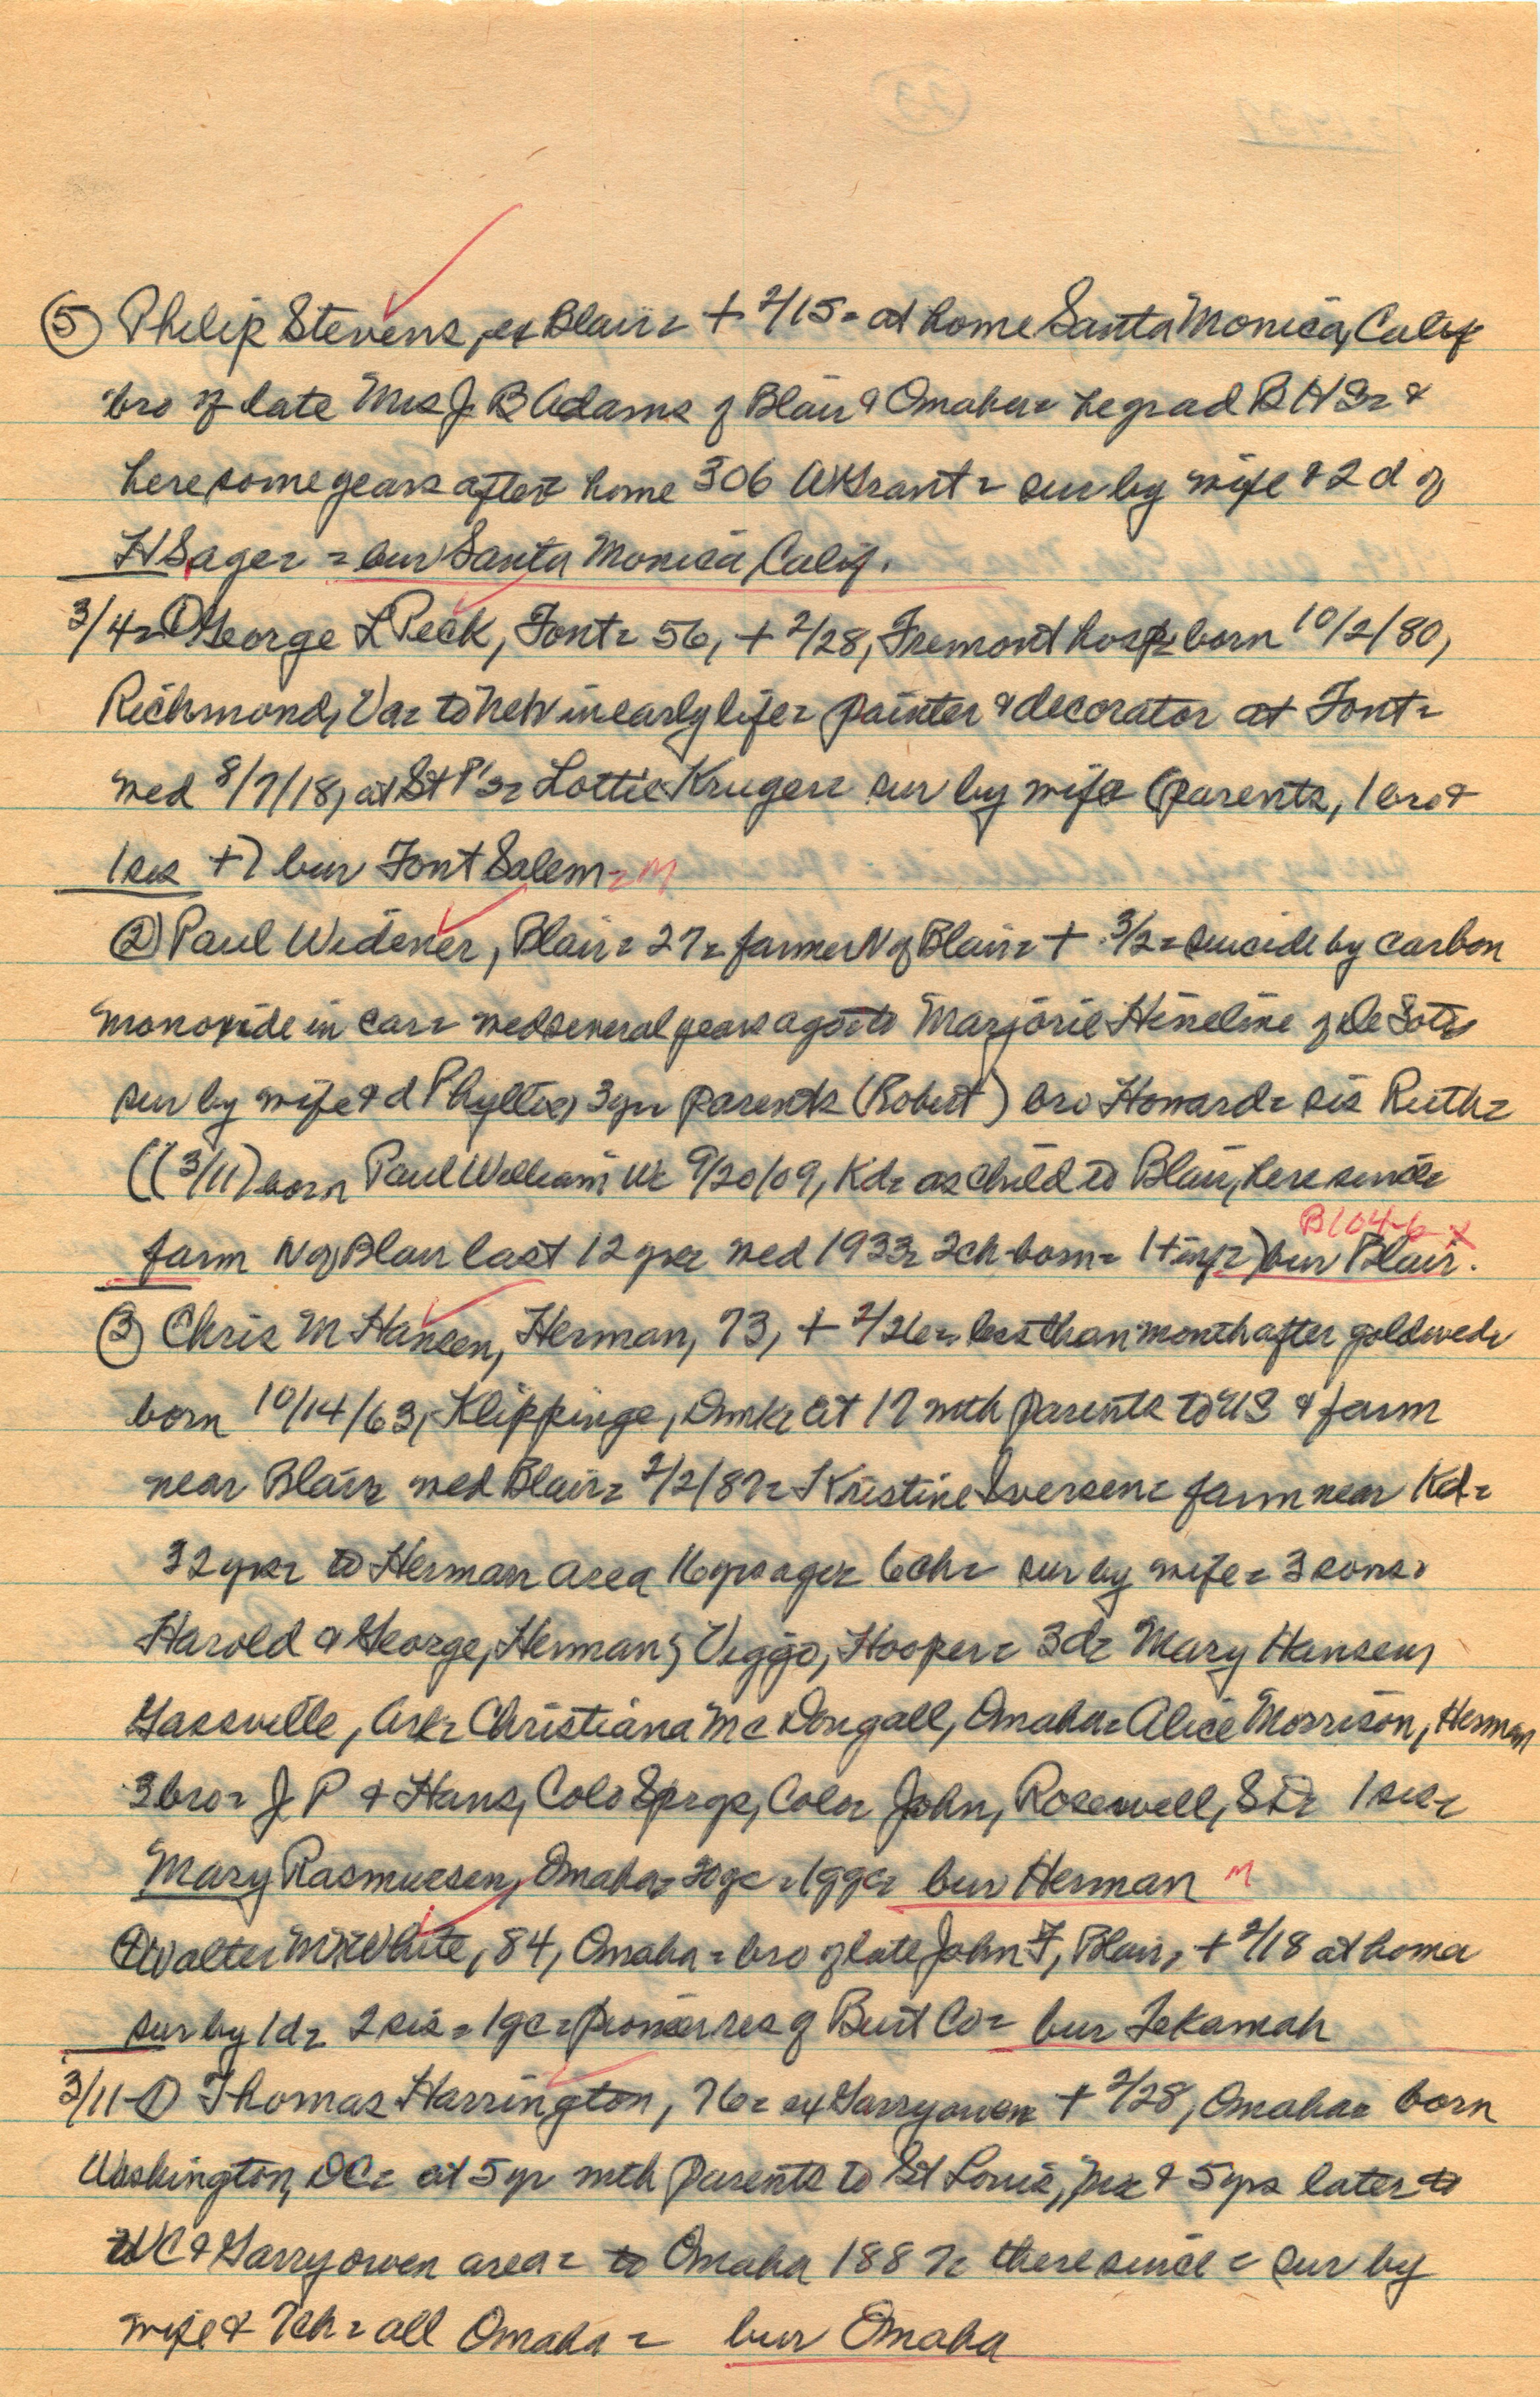 ⑤ Philip Stevens, ex Blair = + 2/15 = at home Santa Monica, Calif
bro of late Mrs J B Adams of Blair & Omaha = he grad B H S = &
here some years after = home 306 W Grant = sur by wife & 2 d of
H Sager = = bur Santa Monica, Calif.
3/4 = ① George L Peck, Font = 56, + 2/28, Fremont hosp = born 10/2/80,
Richmond, Va = to Neb in early life = painter & decorator at Font =
wed 8/7/18, at St P's = Lottie Kruger = sur by wife (parents, 1 bro &
1 sis +) bur Font Salem = M
② Paul Widener, Blair = 27 = farmer N of Blair = + 3/2 = suicide by carbon
monoxide in car = wed several years ago to Marjorie Hineline of De Soto
sur by wife & d Phyllis, 3 yr = parents (Robert) bro Howard = sis Ruth =
((3/11) born Paul William W = 9/20/09, Kd = as child to Blair, here since
B104-6 X
farm N of Blair last 12 yrs = wed 1933 = 2 ch born = 1 + inf =) bur Blair.
③ Chris M Hansen, Herman, 73, + 2/26 = less than month after gold wed =
born 10/14/63, Klippinge, Dmk = at 17 with parents to US & farm
near Blair = wed Blair = 2/2/87 = Kristine Iversen = farm near Kd =
32 yrs = to Herman area 16 yrs ago = 6 ch = sur by wife = 3 sons =
Harold & George, Herman; Viggo, Hooper = 3 d = Mary Hansen,
Gassville, Ark = Christiana McDougall, Omaha = Alice Morrison, Herman
3 bro = J P & Hans, Colo Sprgs, Colo = John, Rosewell, S D = 1 sis =
Mary Rasmussen, Omaha = 20 gc = 1 ggc = bur Herman M
④ Walter M White, 84, Omaha = bro of late John F, Blair, + 2/18 at home
sur by 1 d = 2 sis = 1 gc = pioneer res of Burt Co = bur Tekamah
3/11 - ① Thomas Harrington, 76 = ex Garryowen + 2/28, Omaha = born
Washington, DC = at 5 yr with parents to St Louis, & 5 yrs later to
WC & Garryowen area = to Omaha 1887 = there since = sur by
wife & 7 ch = all Omaha = bur Omaha